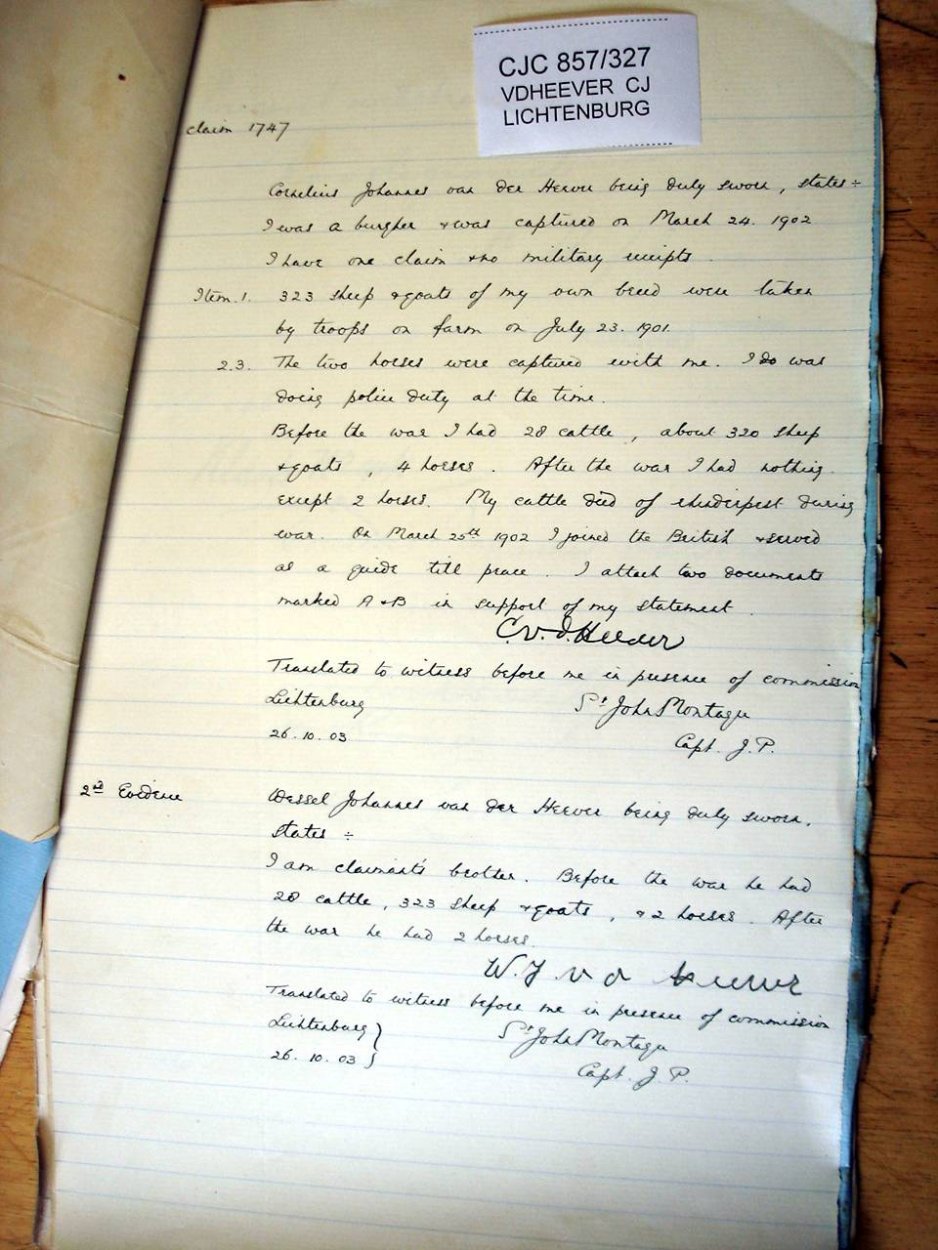 CJC 857/327
VDHEEVER CJ
LICHTENBURG
claim 1747
Cornelius Johannes van der Heever being duly sworn, states ÷
I was a burgher & was captured on March 24. 1902
I have one claim & no military receipts.
Item. 1. 323 sheep & goats of my own breed were taken
by troops on farm on July 23. 1901.
2.3. The two horses were captured with me. I do was
doing police duty at the time.
Before the war I had 28 cattle, about 320 sheep
& goats, 4 horses. After the war I had nothing
except 2 horses. My cattle died of rhinderpest during
war. On March 25th 1902 I joined the British & served
as a guide till peace. I attach two documents
marked A & B in support of my statement.
C.v.d.Heever
Translated to witness before me in presence of commission
Lichtenburg St John Montagu
26.10.03 Capt. J.P.
2nd Evidence Wessel Johannes van der Heever being duly sworn,
states ÷
I am claimant's brother. Before the war he had
28 cattle, 323 sheep & goats, & 2 horses. After
the war he had 2 horses.
W. J v d Heever
Translated to witness before me in presence of commission
Lichtenburg } St John Montagu
26.10.03 } Capt. J.P.